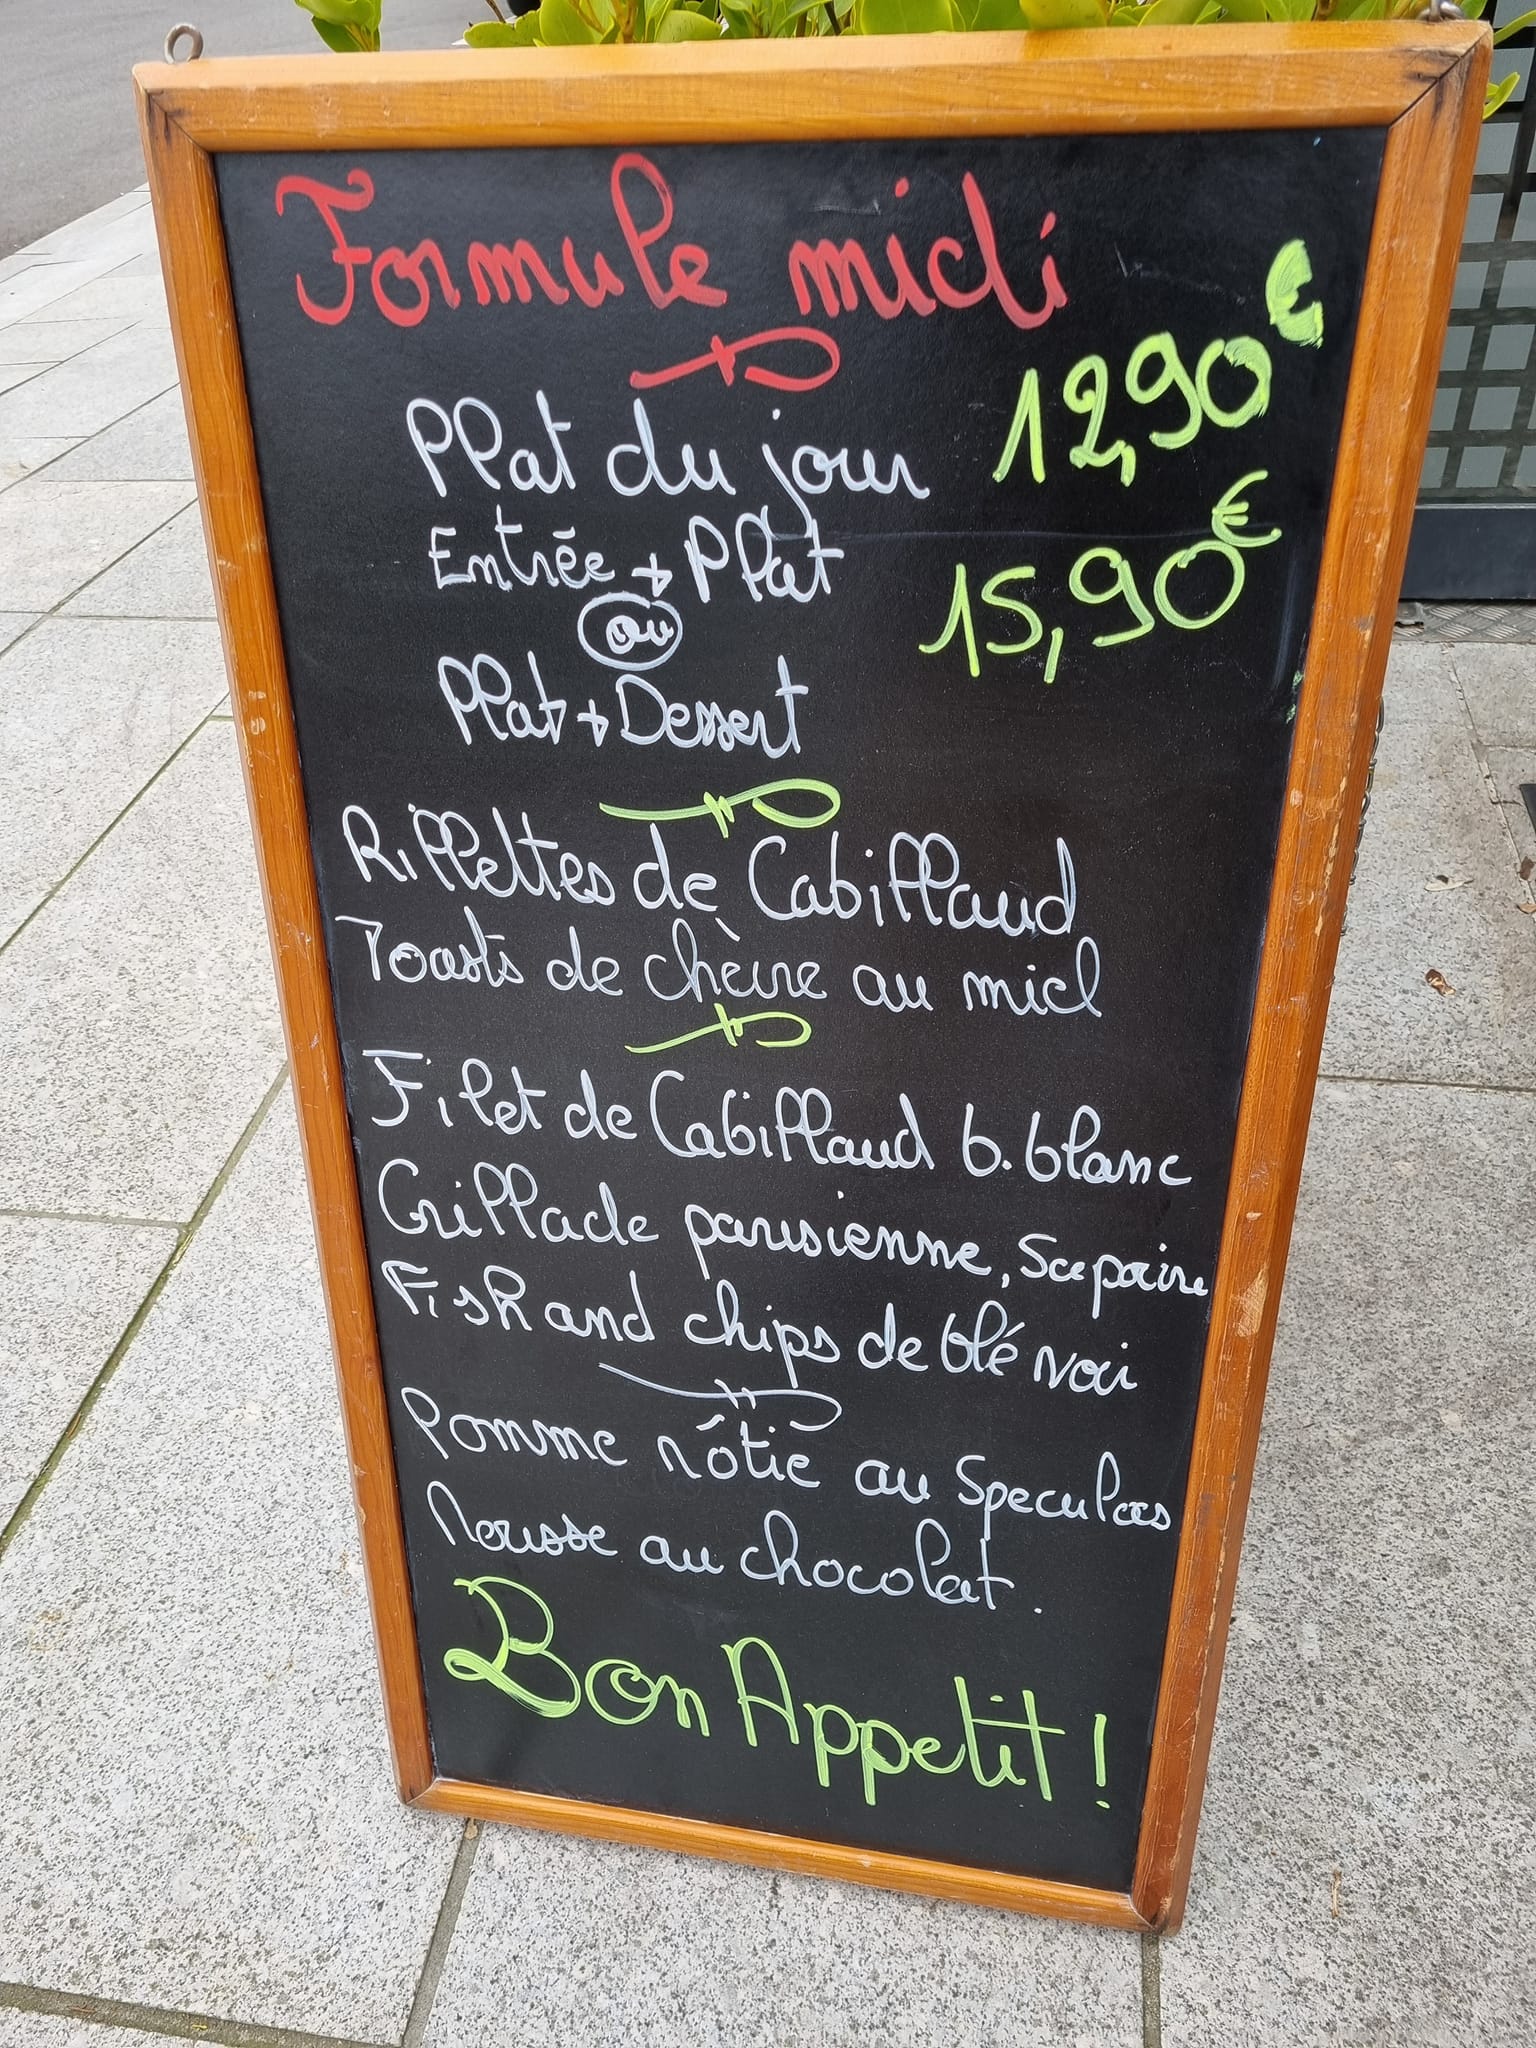 Formule midi
Plat du jour 12,90€
Entrée + Plat 15,90€
ou
Plat + Dessert
Rillettes de Cabillaud
Toasts de chèvre au miel
Filet de Cabillaud b. blanc
Grillade parisienne, Sce poivre
Fish and chips de blé noir
Pomme rôtie au Speculoos
Mousse au chocolat.
Bon Appetit !